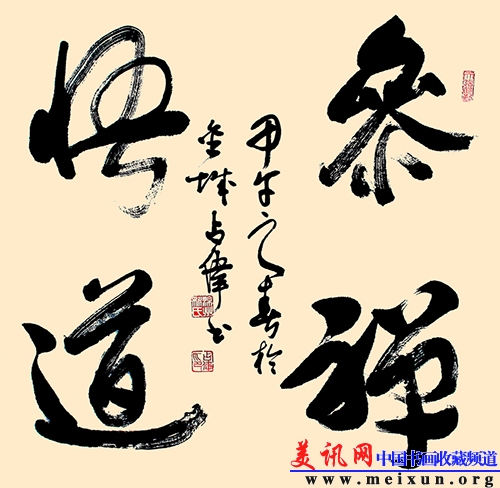 參禪
悟道
甲午之春於
金城占偉书
美讯网 中国书画收藏频道
www.meixun.org